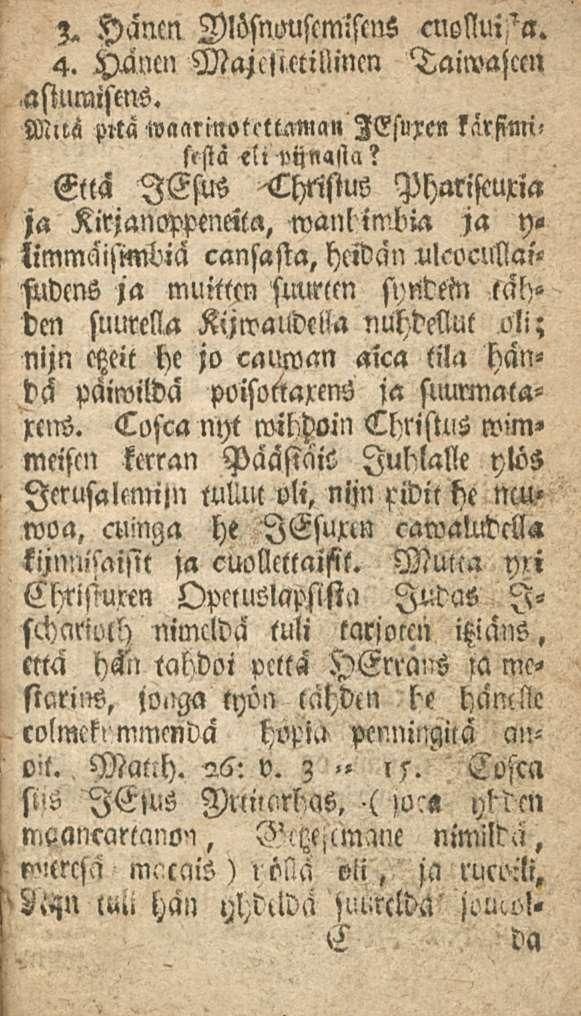 3. Hänen Ylösnousemisens cuolluista.
4. Hänen Majestetillinen Taiwaseen
astumisens.
Mitä pitä waarinotettaman JEsuxen kärsimi-
sestä eli pijnasta?
Että JEsus Christus Phariseuxia
ja Kirjanoppeneita, wanhimbia ja y-
limmäisimbiä cansasta, heidän ulcocullai-
sudens ja muitten suurten syndein täh-
den suurella Kijwaudella nuhdellut oli;
nijn etzeit he jo cauwan aica tila hän-
dä päiwildä poisottaxens ja suurmata-
xens. Cosca nyt wihdoin Christus wim-
meisen kerran Pääsiäis Juhlalle ylös
Jerusalemijn tullut oli, nijn pidit he neu-
woa, cuinga he JEsuxen cawaludella
kijnnisaisit ja cuolettaisit. Mutta yxi
Christuxen Opetuslapsista Judas I-
scharioth nimeldä tuli tarjoten itziäns,
että hän tahdoi pettä HErrans ja me-
starins, jonga työn tähden he hänelle
colmekymmendä hopia penningitä an-
oit. Matth. 26: v. 3 -- 15. Cosca
siis JEsus Yrttitarhas, (joca yhden
maancartanon, Getzesemane nimildä,
wieresä macais) röllä oli, ja rucoili,
Nijn tuli hän yhdeldä suurelda joucol-
C da